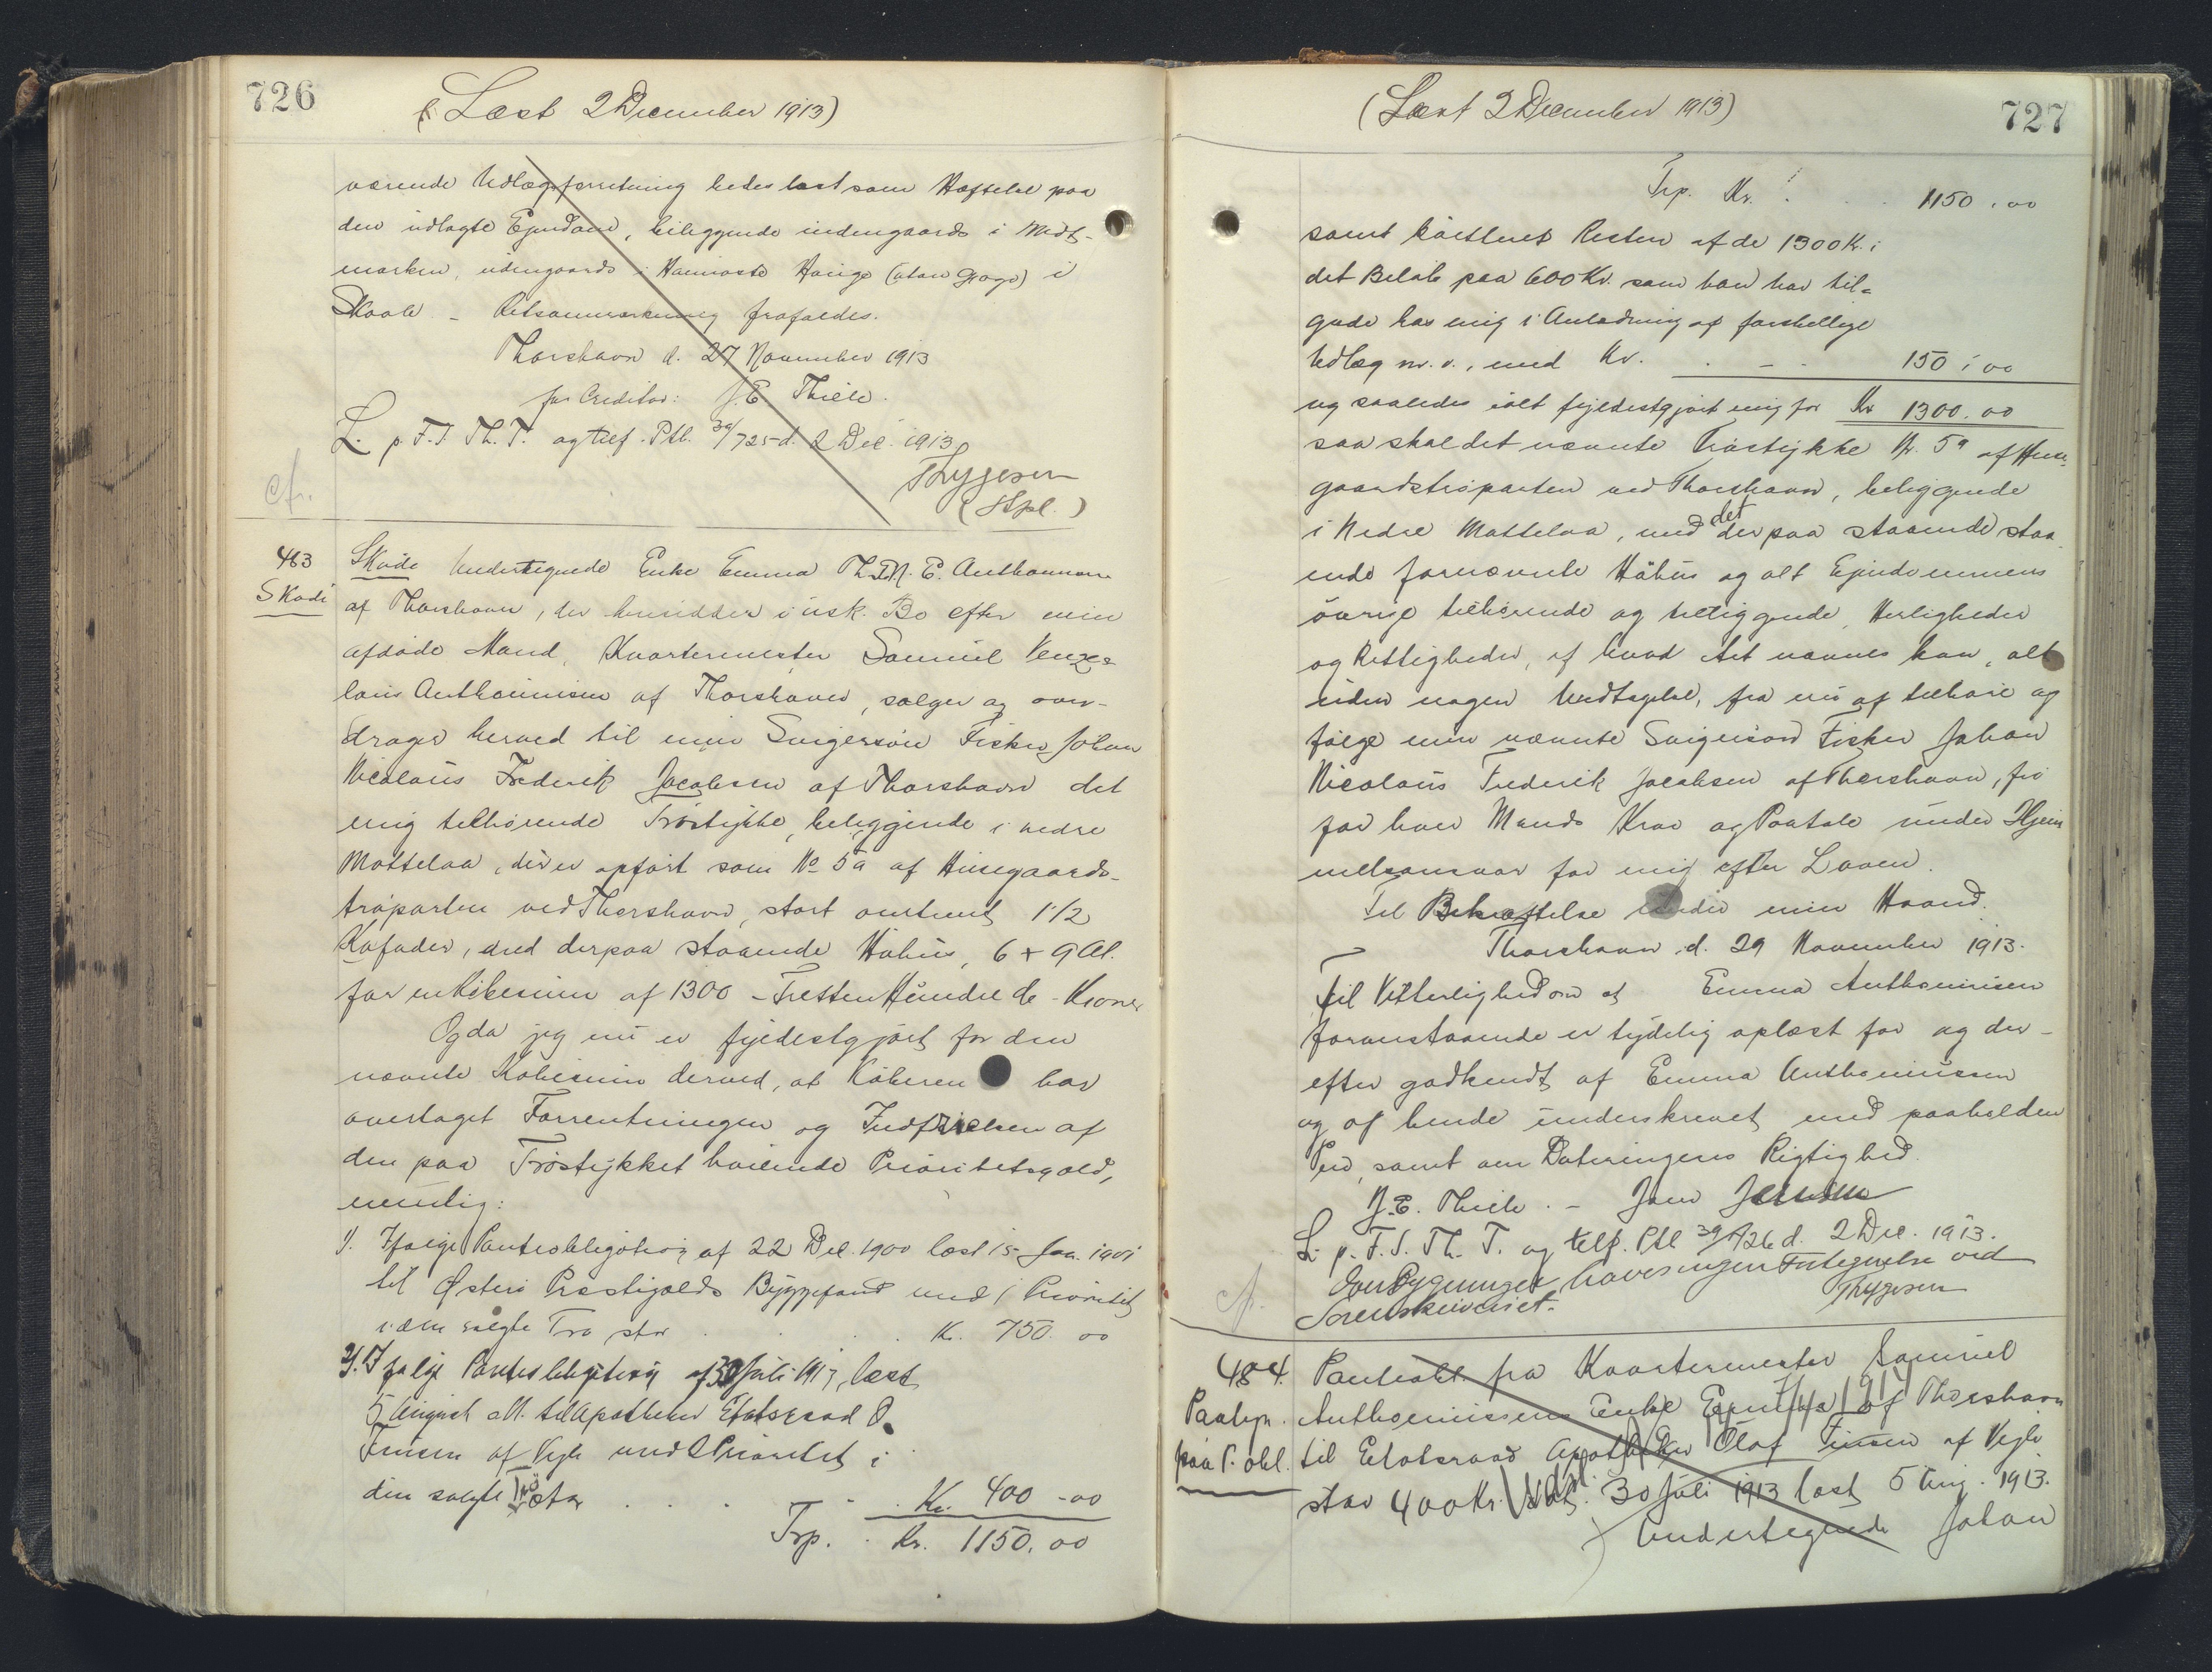 726
(Læst 2 December 1913)
værende Udlægsforretning bedes læst som Hæftelse paa
den udlagte Ejendom, beliggende indengaards i Midt-
marken, udengaards i Hauge (utan Garđs) i
Skaale - Retsanmærkning frafaldes.
Thorshavn d. 27 November 1913
for Creditor: J. E. Thiele.
L. p. F. S. Th. T. og tilf. Ptb. 39/725 d. 2 Dec. 1913
Thygesen
(Stpl.)
cfr.
483
Skøde
Skøde Undertegnede Enke Emma Th. D. N. E. Anthonisen
af Thorshavn, der hensidder i usk. Bo efter min
afdøde Mand, Kvartermester Samuel Venzes-
laus Anthonisen af Thorshavn, sælger og over-
drager herved til min Svigersøn Fisker Johan
Nicolaus Frederik Jacobsen af Thorshavn det
mig tilhørende Trøstykke, beliggende i nedre
Mattelaa, der er opført som No 5a af Husegaards-
trøparten ved Thorshavn, stort omtrent 1 1/2
Kafader, med derpaa staaende Høhus, 6 + 9 Al.
for en Købesum af 1300 - Tretten Hundrede - Kroner
Og da jeg nu er fyldestgjort for den
nævnte Købesum derved, at Køberen har
overtaget Forrentningen og Indfrielsen af
den paa Trøstykket hvilende Prioritetsgæld,
nemlig:
1. Ifølge Panteobligation af 22 Dec. 1900 læst 15 Jan. 1901
til Østerø Præstigælds Byggefond med 1 Prioritet
i den solgte Trø stor . . . Kr. 750. 00
2. Ifølge Panteobligation af 30 Juli 1913, læst
5 August s. A. til Apotheker Etatsraad O.
Finsen af Vejle med 2 Prioritet i
den solgte Trø stor . . . Kr. 400 - 00
Trp. . Kr. 1150. 00
(Læst 2 December 1913)
727
Trp. Kr. . . . 1150. 00
samt kvitteret Resten af de 1300 Kr. i
det Beløb paa 600 Kr. som han har til-
gode hos mig i Anledning af forskellige
Udlæg m. v., med Kr. . - . 150. 00
og saaledes ialt fyldestgjort mig for Kr 1300. 00
saa skal det nævnte Trøstykke Nr. 5a af Huse-
gaardstrøparten ved Thorshavn, beliggende
i Nedre Mattelaa, med det derpaa staaende staa
ende fornævnte Høhus og alt Ejendommens
øvrige tilhørende og tilliggende, Herligheder
og Rettigheder, af hvad Art nævnes kan, alt
uden nogen Undtagelse, fra nu af tilhøre og
følge min nævnte Svigersøn Fisker Johan
Nicolaus Frederik Jacobsen af Thorshavn, fri
for hver Mands Krav og Paatale under Hjem
melsansvar for mig efter Loven.
Til Bekræftelse under min Haand.
Thorshavn d. 29 November 1913.
Til Vitterlighed om at Emma Anthonisen
foranstaaende er tydelig oplæst for og der-
efter godkendt af Emma Anthonisen
og af hende underskrevet med paaholden
Pen, samt om Dateringens Rigtighed.
J. E. Thiele. - Jens Jensen
L. p. F. S. Th. T. og tilf. Ptb 39/726 d. 2 Dec. 1913.
Over Bygninger haves ingen Fortegnelse ved
Sorenskriveriet. Thygesen
cfr.
484.
Paategn.
paa P. obl.
Panteobl. fra Kvartermester Samuel
Anthonisens Enke Emma af Thorshavn
til Etatsraad Apotheker Olaf Finsen af Vejle
stor 400 Kr. dat. 30 Juli 1913 læst 5 Aug. 1913.
Undertegnede Johan